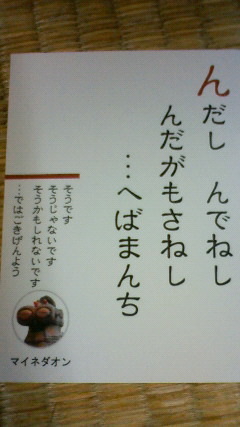 んだし　んでねし
んだがもさねし
…へばまんち
そうです
そうじゃないです
そうかもしれないです
…ではごきげんよう
マイネダオン